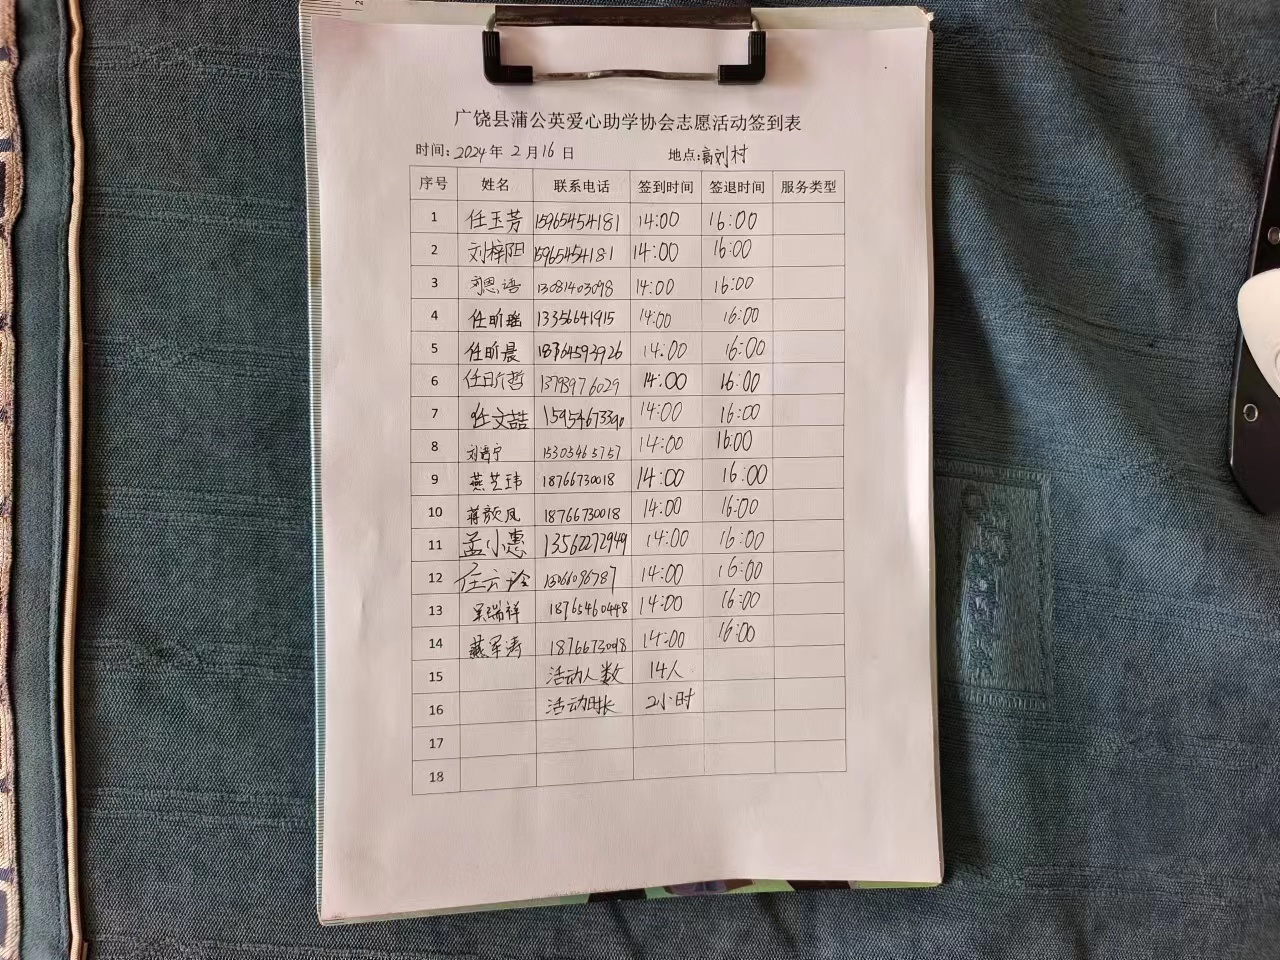 广饶县蒲公英爱心助学协会志愿活动签到表
时间: 2024 年 2 月 16 日 地点: 高刘村
序号 姓名 联系电话 签到时间 签退时间 服务类型
1 任玉芳 15965454181 14:00 16:00
2 刘梓阳 15965454181 14:00 16:00
3 刘恩语 13081403098 14:00 16:00
4 任昕瑶 13356641915 14:00 16:00
5 任昕晨 18764593926 14:00 16:00
6 任昕哲 14:00 16:00
7 任文喆 14:00 16:00
8 15305465757 14:00 16:00
9 燕艺玮 18766730018 14:00 16:00
10 18766730018 14:00 16:00
11 孟小惠 13562272949 14:00 16:00
12 14:00 16:00
13 吴瑞祥 18765460448 14:00 16:00
14 14:00 16:00
15 活动人数 14人
16 活动时长 2小时
17
18